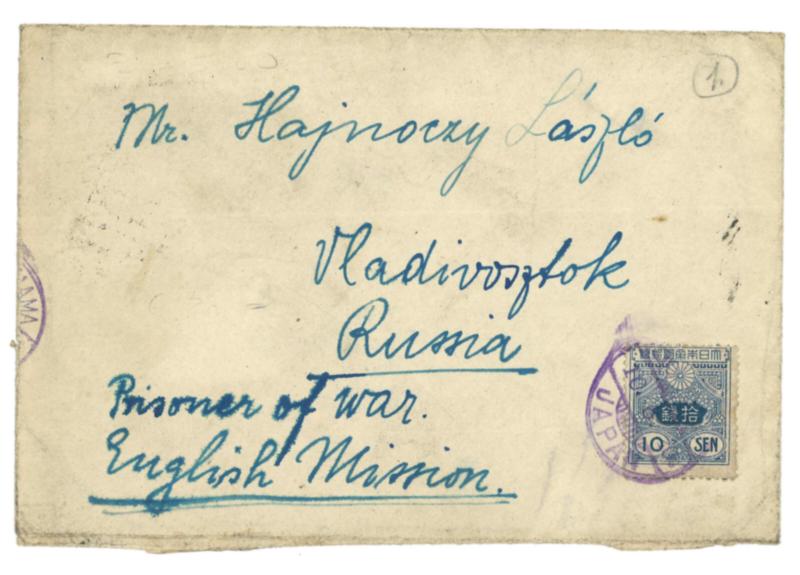 1.
Mr. Hajnoczy László
Vladivosztok
Russia
Prisoner of war.
English Mission.
大日本帝國郵便
拾錢
10 SEN
JAPAN
AMA